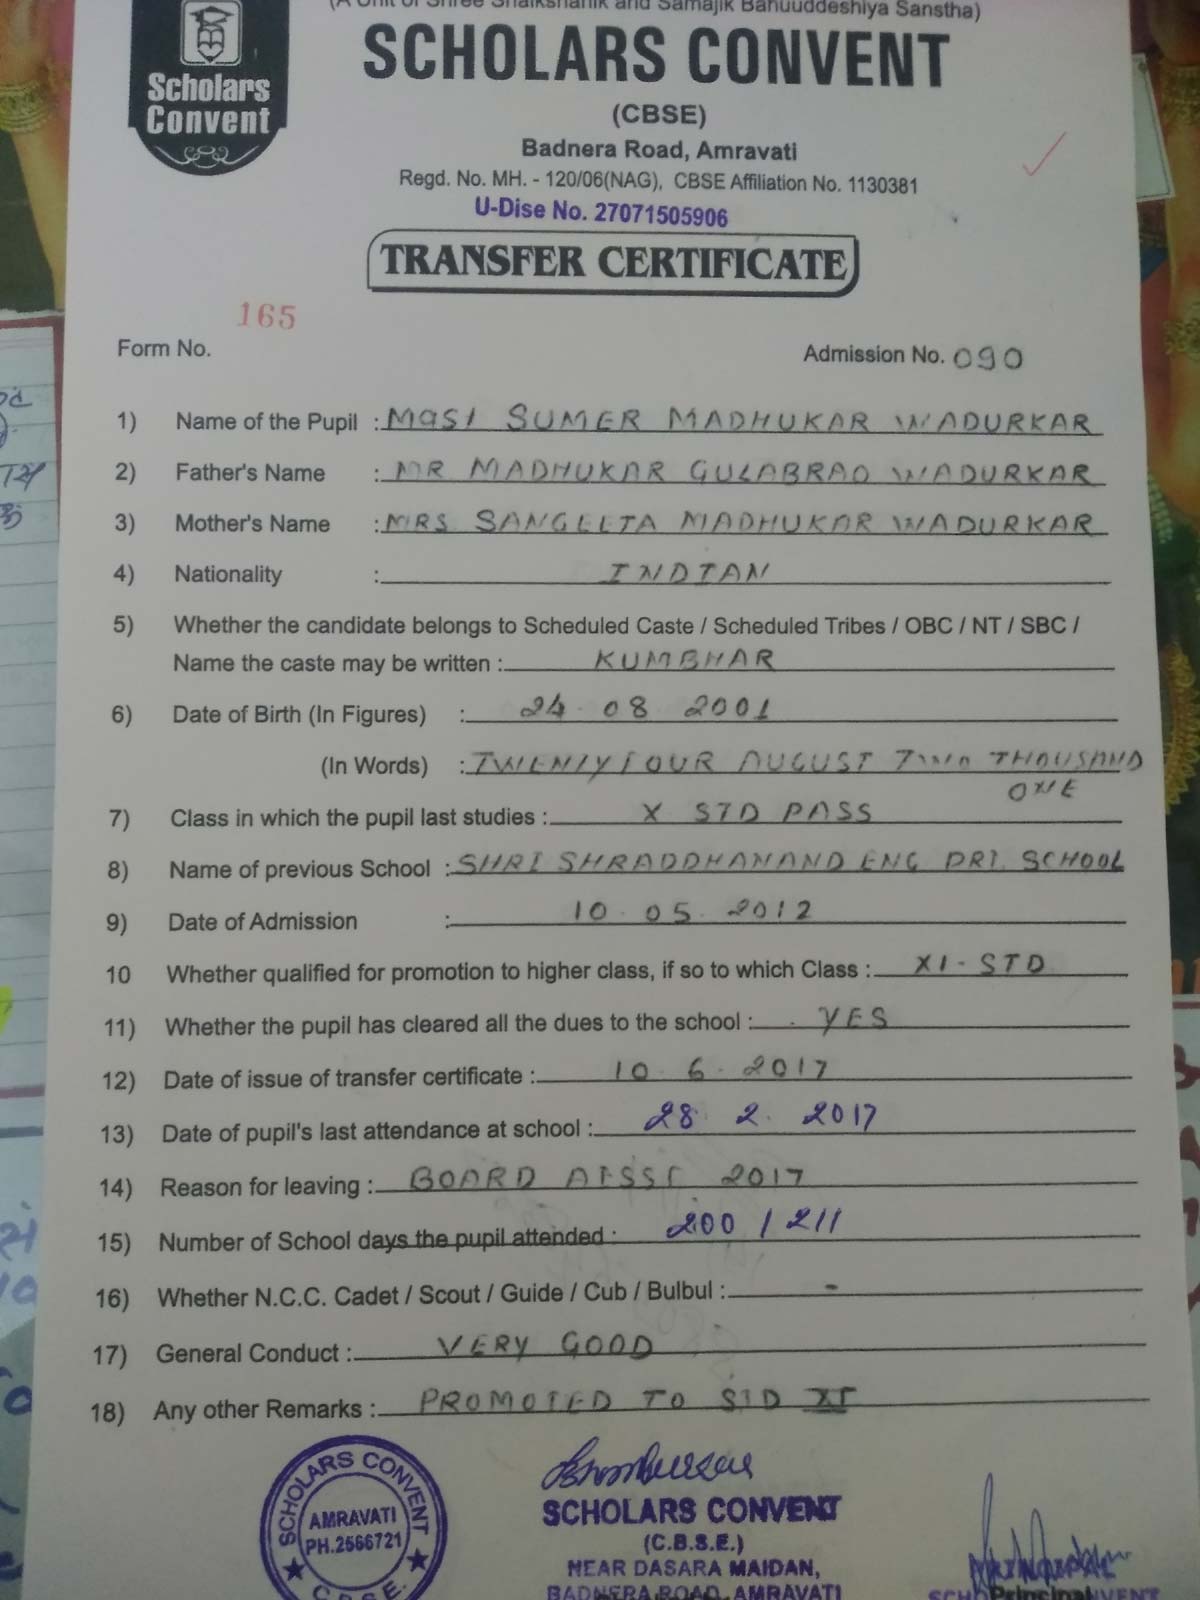 (A Unit of Shree Shaikshanik and Samajik Bahuuddeshiya Sanstha)
Scholars
Convent
SCHOLARS CONVENT
(CBSE)
Badnera Road, Amravati
Regd. No. MH. - 120/06(NAG), CBSE Affiliation No. 1130381
U-Dise No. 27071505906
TRANSFER CERTIFICATE
165
Form No.
Admission No. 090
1) Name of the Pupil : MAST SUMER MADHUKAR WADURKAR
2) Father's Name : MR MADHUKAR GULABRAO WADURKAR
3) Mother's Name : MRS SANGEETA MADHUKAR WADURKAR
4) Nationality : INDIAN
5) Whether the candidate belongs to Scheduled Caste / Scheduled Tribes / OBC / NT / SBC /
Name the caste may be written : KUMBHAR
6) Date of Birth (In Figures) : 24 08 2001
(In Words) : TWENTY FOUR AUGUST TWO THOUSAND
ONE
7) Class in which the pupil last studies : X STD PASS
8) Name of previous School : SHRI SHRADDHANAND ENG PRI. SCHOOL
9) Date of Admission : 10.05.2012
10 Whether qualified for promotion to higher class, if so to which Class : XI - STD
11) Whether the pupil has cleared all the dues to the school : YES
12) Date of issue of transfer certificate : 10.6.2017
13) Date of pupil's last attendance at school : 28.2.2017
14) Reason for leaving : BOARD AISSE 2017
15) Number of School days the pupil attended : 200 / 211
16) Whether N.C.C. Cadet / Scout / Guide / Cub / Bulbul : -
17) General Conduct : VERY GOOD
18) Any other Remarks : PROMOTED TO STD XI
SCHOLARS CONVENT
AMRAVATI
PH.2566721
C.B.S.E.
SCHOLARS CONVENT
(C.B.S.E.)
NEAR DASARA MAIDAN,
BADNERA ROAD, AMRAVATI
Principal